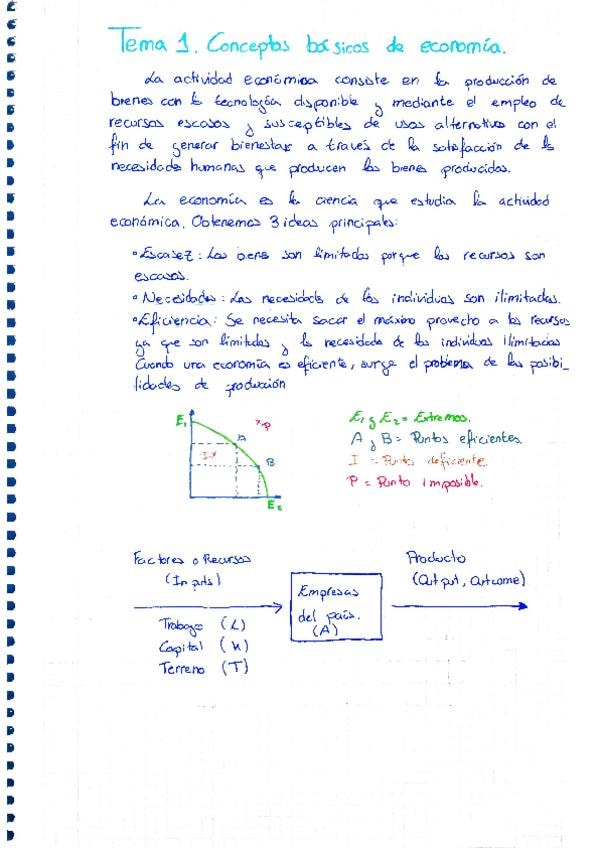 Tema 1. Conceptos básicos de economía.
La actividad económica consiste en la producción de
bienes con la tecnología disponible y mediante el empleo de
recursos escasos y susceptibles de usos alternativos con el
fin de generar bienestar a través de la satisfacción de las
necesidades humanas que producen los bienes producidos.
La economía es la ciencia que estudia la actividad
económica. Obtenemos 3 ideas principales:
• Escasez: Los bienes son limitados porque los recursos son
escasos.
• Necesidades: Las necesidades de los individuos son ilimitadas.
• Eficiencia: Se necesita sacar el máximo provecho a los recursos
ya que son limitados y las necesidades de los individuos ilimitadas
Cuando una economía es eficiente, surge el problema de las posibi_
lidades de producción
E1
x P
A
I x
B
E2
E1 y E2 = Extremos.
A y B = Puntos eficientes.
I = Punto deficiente
P = Punto imposible.
Factores o Recursos
(Inputs)
Trabajo (L)
Capital (K)
Terreno (T)
Empresas
del país.
(A)
Producto
(Output, Outcome)